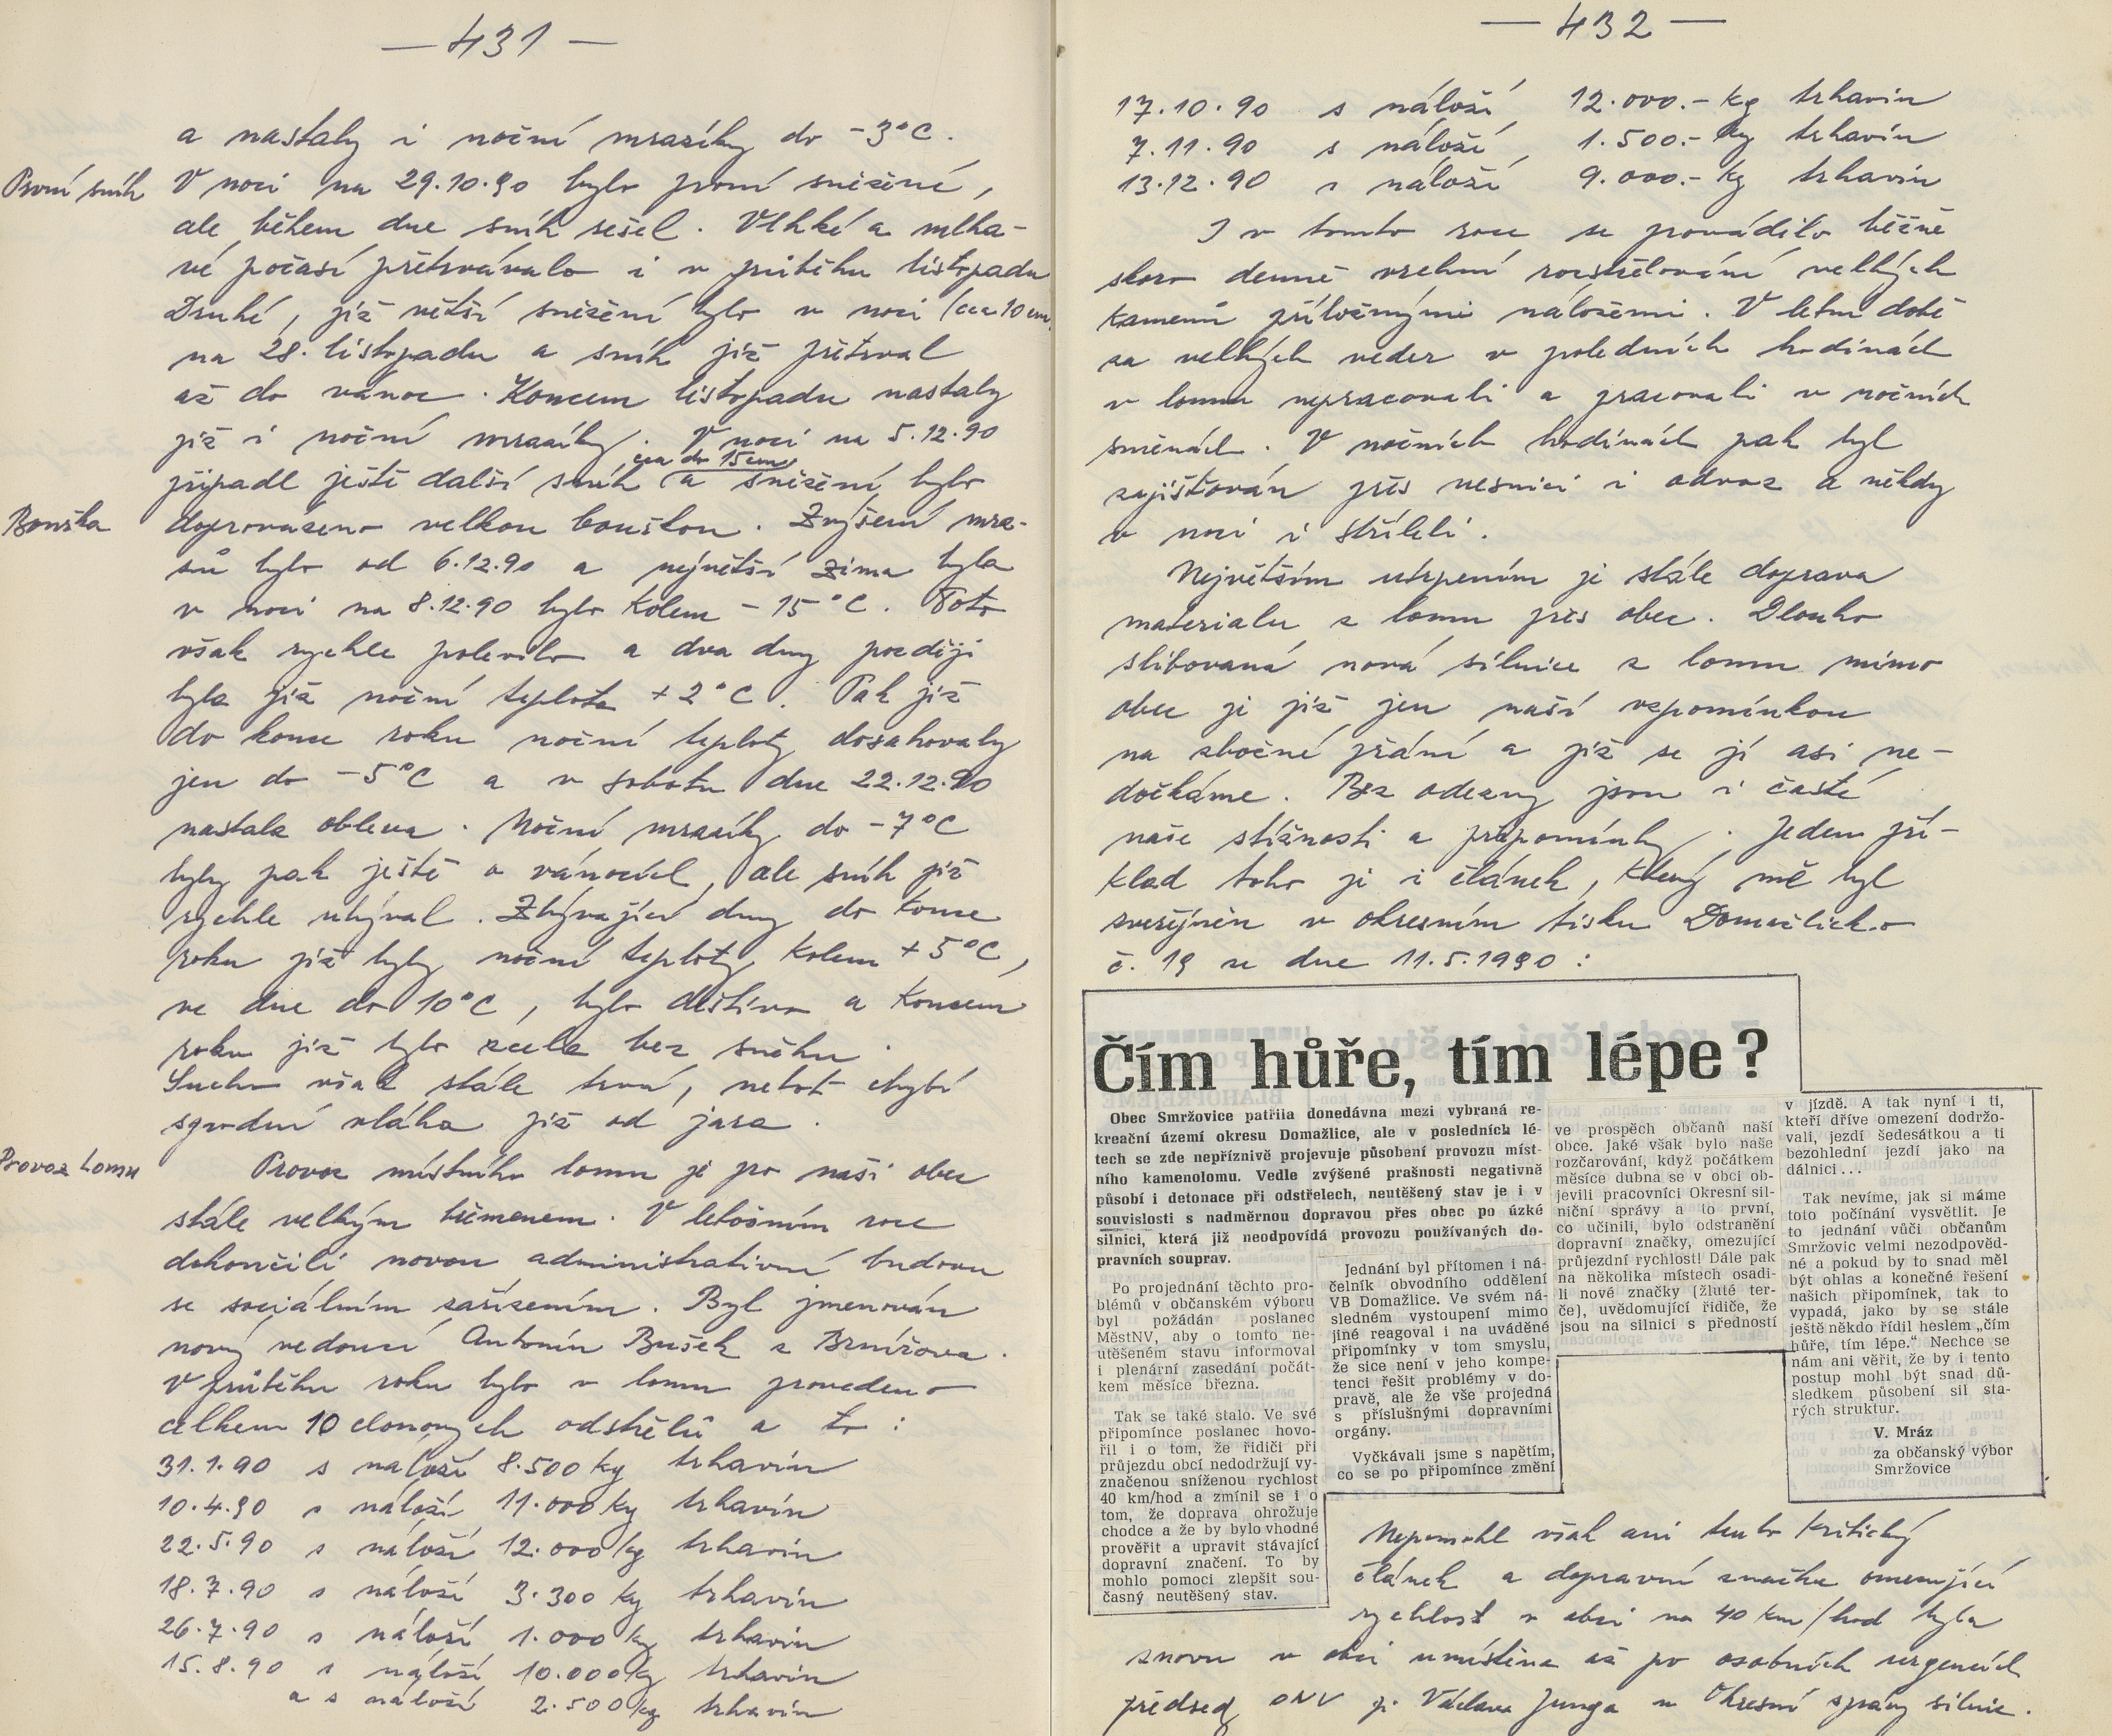 — 431 —
a nastaly i noční mrazíky do -3°C.
První sníh
V noci na 29.10.90 bylo první sněžení,
ale během dne sníh sešel. Vlhké a mlha-
vé počasí přetrvávalo i v průběhu listopadu
Druhé, již větší sněžení bylo v noci (cca 10 cm)
na 28. listopadu a sníh již přetrval
až do vánoc. Koncem listopadu nastaly
již i noční mrazíky. V noci na 5.12.90
cca do 15 cm
připadl ještě další sníh a sněžení bylo
Bouřka
doprovázeno velkou bouřkou. Zvýšení mra-
zů bylo od 6.12.90 a největší zima byla
v noci na 8.12.90 bylo kolem -15°C. Toto
však rychle polevilo a dva dny později
byla již noční teplota +2°C. Pak již
do konce roku noční teploty dosahovaly
jen do -5°C a v sobotu dne 22.12.90
nastala obleva. Noční mrazíky do -7°C
byly pak ještě o vánocích, ale sníh již
rychle ubýval. Zbývající dny do konce
roku již byly noční teploty kolem +5°C,
ve dne do 10°C, bylo deštivo a koncem
roku již bylo zcela bez sněhu.
Sucho však stále trvá, neboť chybí
spodní vláha již od jara.
Provoz lomu
Provoz místního lomu je pro naši obec
stále velkým břemenem. V letošním roce
dokončili novou administrativní budovu
se sociálním zařízením. Byl jmenován
nový vedoucí Antonín Bušek z Brnířova.
V průběhu roku bylo v lomu provedeno
celkem 10 clonových odstřelů a to:
31.1.90 s náloží 8.500 kg trhavin
10.4.90 s náloží 11.000 kg trhavin
22.5.90 s náloží 12.000 kg trhavin
18.7.90 s náloží 3.300 kg trhavin
26.7.90 s náloží 1.000 kg trhavin
15.8.90 s náloží 10.000 kg trhavin
a s náloží 2.500 kg trhavin
— 432 —
17.10.90 s náloží 12.000.- kg trhavin
7.11.90 s náloží 1.500.- kg trhavin
13.12.90 s náloží 9.000.- kg trhavin
I v tomto roce se provádělo běžně
skoro denně vrchní rozstřelování velkých
kamenů příložnými náložemi. V letní době
za velkých veder v poledních hodinách
v lomu nepracovali a pracovali v nočních
směnách. V nočních hodinách pak byl
zajišťován přes vesnici i odvoz a někdy
v noci i stříleli.
Největším utrpením je stále doprava
materialu z lomu přes obec. Dlouho
slibovaná nová silnice z lomu mimo
obec je již jen naší vzpomínkou
na zbožné přání a již se jí asi ne-
dočkáme. Bez odezvy jsou i časté
naše stížnosti a připomínky. Jeden pří-
klad toho je i článek, který mě byl
zveřejněn v okresním tisku Domažlicko
č. 19 ze dne 11.5.1990:
Čím hůře, tím lépe?
Obec Smržovice patřila donedávna mezi vybraná re-
kreační území okresu Domažlice, ale v posledních lé-
tech se zde nepříznivě projevuje působení provozu míst-
ního kamenolomu. Vedle zvýšené prašnosti negativně
působí i detonace při odstřelech, neutěšený stav je i v
souvislosti s nadměrnou dopravou přes obec po úzké
silnici, která již neodpovídá provozu používaných do-
pravních souprav.
Po projednání těchto pro-
blémů v občanském výboru
byl požádán poslanec
MěstNV, aby o tomto ne-
utěšeném stavu informoval
i plenární zasedání počát-
kem měsíce března.
Tak se také stalo. Ve své
připomínce poslanec hovo-
řil i o tom, že řidiči při
průjezdu obcí nedodržují vy-
značenou sníženou rychlost
40 km/hod a zmínil se i o
tom, že doprava ohrožuje
chodce a že by bylo vhodné
prověřit a upravit stávající
dopravní značení. To by
mohlo pomoci zlepšit sou-
časný neutěšený stav.
Jednání byl přítomen i ná-
čelník obvodního oddělení
VB Domažlice. Ve svém ná-
sledném vystoupení mimo
jiné reagoval i na uváděné
připomínky v tom smyslu,
že sice není v jeho kompe-
tenci řešit problémy v do-
pravě, ale že vše projedná
s příslušnými dopravními
orgány.
Vyčkávali jsme s napětím,
co se po připomínce změní
ve prospěch občanů naší
obce. Jaké však bylo naše
rozčarování, když počátkem
měsíce dubna se v obci ob-
jevili pracovníci Okresní sil-
niční správy a to první,
co učinili, bylo odstranění
dopravní značky, omezující
průjezdní rychlost! Dále pak
na několika místech osadi-
li nové značky (žluté ter-
če), uvědomující řidiče, že
jsou na silnici s předností
v jízdě. A tak nyní i ti,
kteří dříve omezení dodržo-
vali, jezdí šedesátkou a ti
bezohlední jezdí jako na
dálnici...
Tak nevíme, jak si máme
toto počínání vysvětlit. Je
to jednání vůči občanům
Smržovic velmi nezodpověd-
né a pokud by to snad měl
být ohlas a konečné řešení
našich připomínek, tak to
vypadá, jako by se stále
ještě někdo řídil heslem „čím
hůře, tím lépe.“ Nechce se
nám ani věřit, že by i tento
postup mohl být snad dů-
sledkem působení sil sta-
rých struktur.
V. Mráz
za občanský výbor
Smržovice
Nepomohl však ani tento kritický
článek a dopravní značka omezující
rychlost v obci na 40 km/hod byla
znovu v obci umístěna až po osobních urgencích
předsedy ONV p. Václava Junga u Okresní správy silnic.